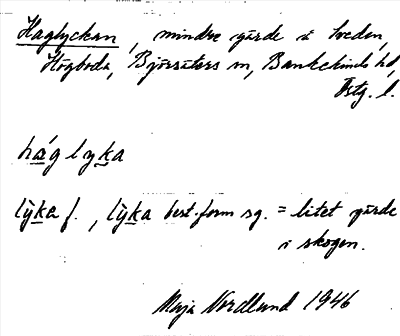 Haglyckan, mindre gärde i Sveden,
Högboda, Björsäters sn, Bankekinds hd,
Östg. l.
háglyka
lyka f., lyka best. form sg. = litet gärde
i skogen.
Maja Nordlund 1946